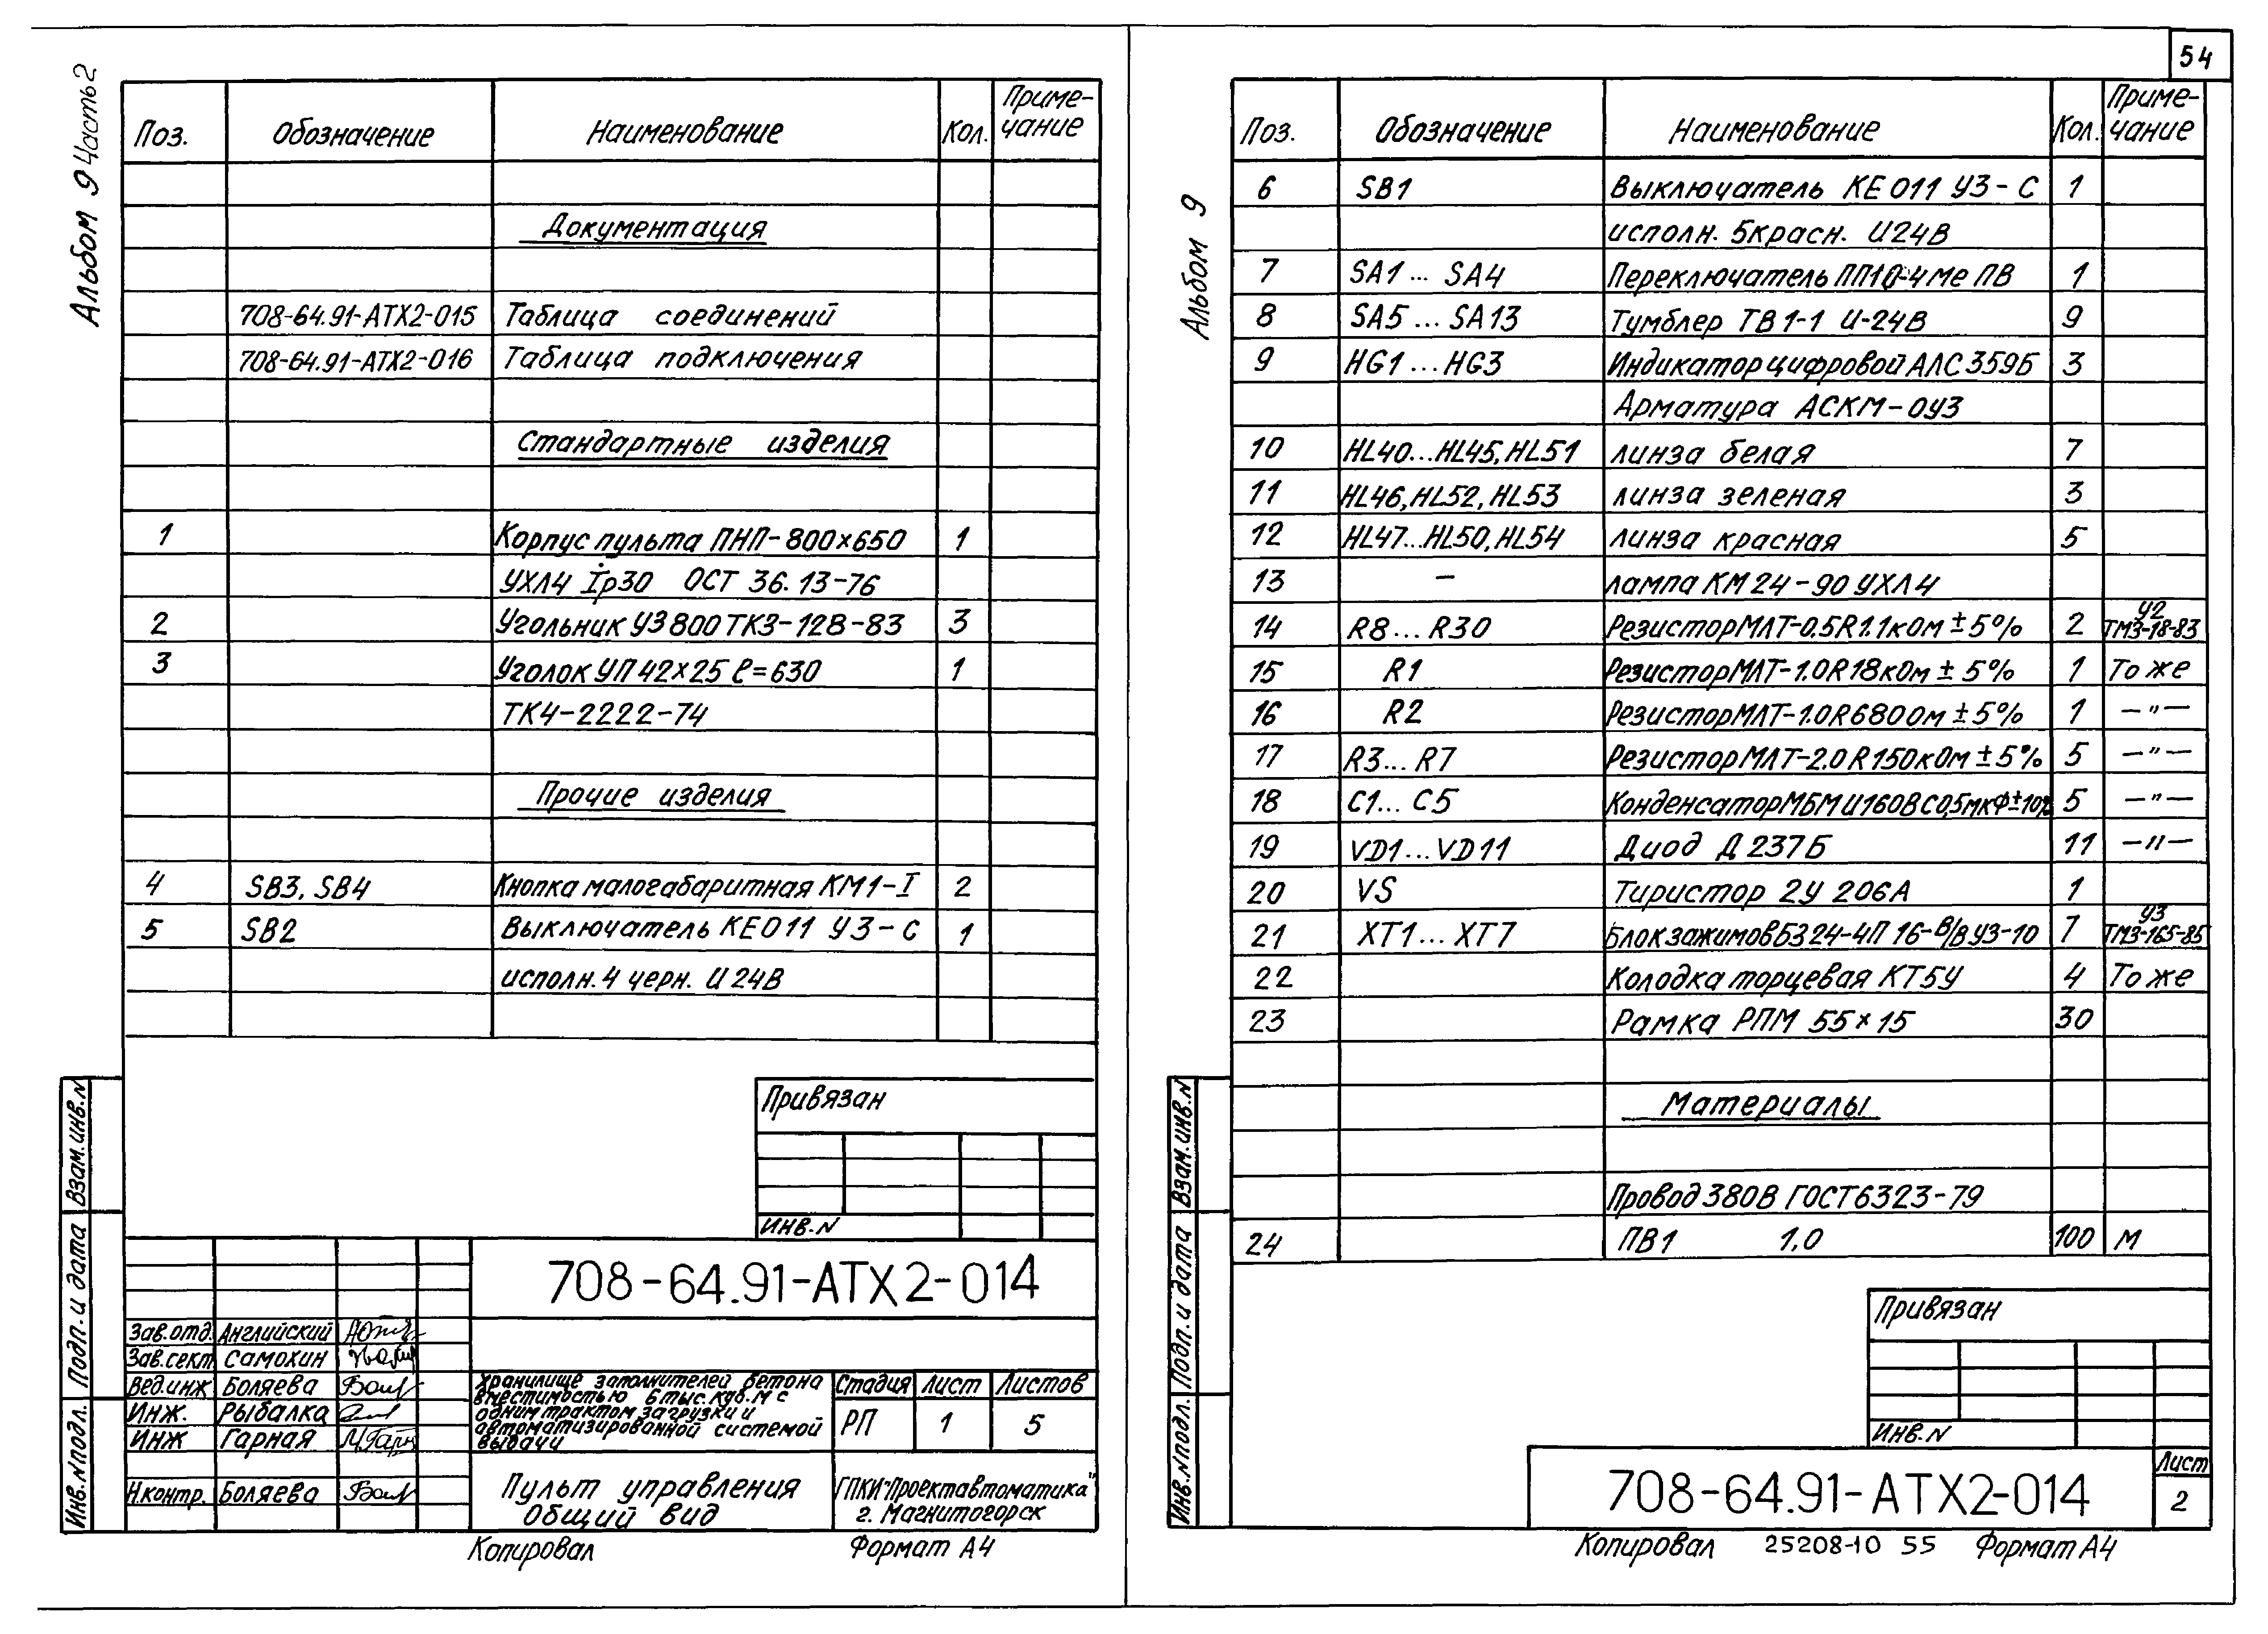 Альбом 9 Часть 2
Поз. Обозначение Наименование Кол. Приме-
чание
Документация
708-64.91-АТХ2-015 Таблица соединений
708-64.91-АТХ2-016 Таблица подключения
Стандартные изделия
1 Корпус пульта ПНП-800×650 1
УХЛ4 Ip30 ОСТ 36.13-76
2 Угольник УЗ800 ТК3-128-83 3
3 Уголок УП 42×25 ℓ=630 1
ТК4-2222-74
Прочие изделия
4 SB3, SB4 Кнопка малогабаритная КМ1-I 2
5 SB2 Выключатель КЕ011 У3-С 1
исполн. 4 черн. U 24В
Привязан
Инв. N
708-64.91-АТХ2-014
Зав. отд. Английский
Зав. сект Самохин
Вед. инж Боляева
Инж. Рыбалка
Инж Гарная
Н.контр. Боляева
Хранилище заполнителей бетона
вместимостью 6 тыс. куб. м с
одним трактом загрузки и
автоматизированной системой
выдачи
Стадия Лист Листов
РП 1 5
Пульт управления
Общий вид
ГПКИ "Проектавтоматика"
г. Магнитогорск
Копировал Формат А4
Инв. N подл. Подп. и дата Взам. инв. N
54
Альбом 9
Поз. Обозначение Наименование Кол. Приме-
чание
6 SB1 Выключатель КЕ 011 У3-С 1
исполн. 5 красн. U24В
7 SA1 ... SA4 Переключатель ПП10-4Ме ПВ 1
8 SA5 ... SA13 Тумблер ТВ1-1 U-24В 9
9 HG1 ... HG3 Индикатор цифровой АЛС 359Б 3
Арматура АСКМ-0У3
10 HL40...HL45, HL51 линза белая 7
11 HL46, HL52, HL53 линза зеленая 3
12 HL47...HL50, HL54 линза красная 5
13 — лампа КМ 24-90 УХЛ4
14 R8...R30 Резистор МЛТ-0.5 R1.1кОм ±5% 2 У2
ТМ3-18-83
15 R1 Резистор МЛТ-1.0 R18кОм ± 5% 1 То же
16 R2 Резистор МЛТ-1.0 R680Ом ±5% 1 —"—
17 R3... R7 Резистор МЛТ-2.0 R150кОм ±5% 5 —"—
18 C1... C5 Конденсатор МБМ U160В С0,5мкФ±10% 5 —"—
19 VD1...VD11 Диод Д 237Б 11 —"—
20 VS Тиристор 2У 206А 1
21 XT1... XT7 Блок зажимов БЗ24-4П 16-В/В У3-10 7 У3
ТМ3-165-85
22 Колодка торцевая КТ5У 4 То же
23 Рамка РПМ 55×15 30
Материалы
Провод 380В ГОСТ 6323-79
24 ПВ1 1,0 100 м
Привязан
Инв. N
708-64.91-АТХ2-014
Лист
2
Копировал 25208-10 55 Формат А4
Инв. N подл. Подп. и дата Взам. инв. N